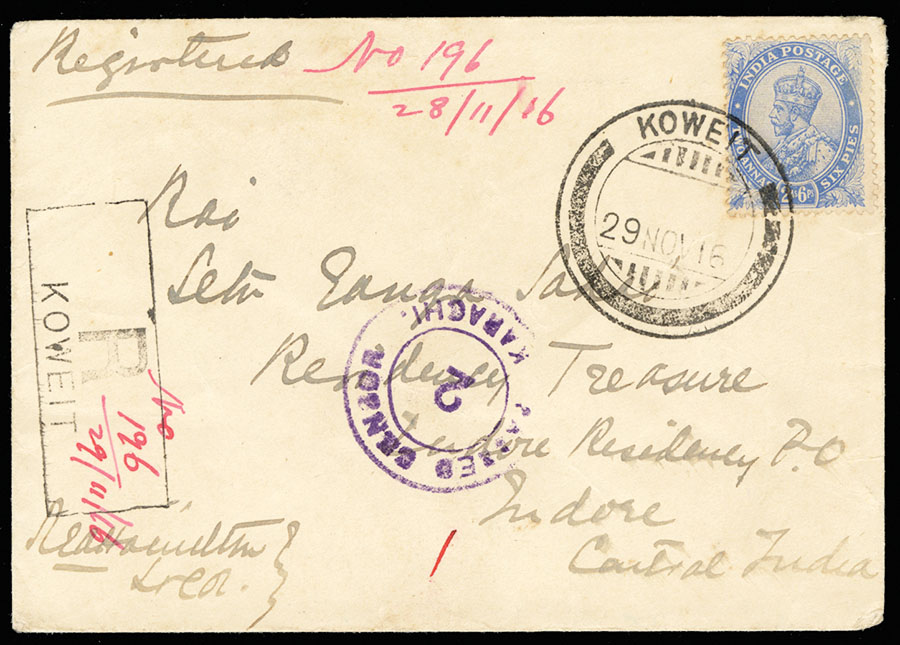 Registered No 196
28/11/16
INDIA POSTAGE
TWO ANNAS SIX PIES
2As6Ps
KOWEIT
29 NOV 16
Rai
Seth Ganga
Residency Treasure
Indore Residency P.O
Indore
Central India
R
KOWEIT
No
196
29/11/16
PASSED CENSOR
2
KARACHI.
Hamilton
Lt Col.